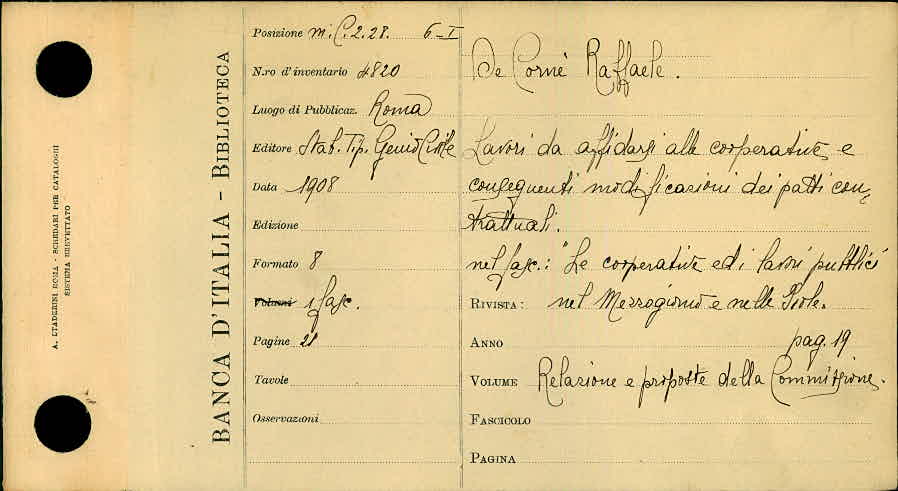 A. STADERINI ROMA - SCHEDARI PER CATALOGHI
SISTEMA BREVETTATO
BANCA D'ITALIA - BIBLIOTECA
Posizione m. C. 2. 28. 6-I
N.ro d'inventario 4820
Luogo di Pubblicaz. Roma
Editore Stab. Tip. Genio Civile
Data 1908
Edizione
Formato 8
Volumi 1 fasc.
Pagine 21
Tavole
Osservazioni
De Cornè Raffaele.
Lavori da affidarsi alle cooperative e
conseguenti modificazioni dei patti con-
trattuali.
nel fasc.: "Le cooperative ed i lavori pubblici
RIVISTA: nel Mezzogiorno e nelle Isole.
ANNO pag. 19
VOLUME Relazione e proposte della Commissione.
FASCICOLO
PAGINA